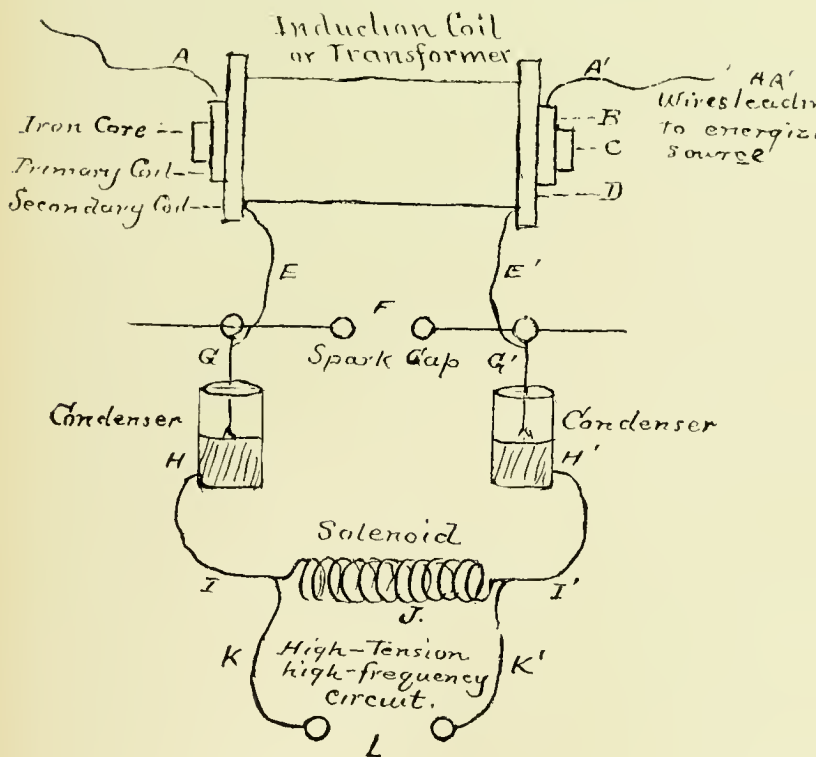 Induction Coil
or Transformer
A
A'
AA'
Wires leadin
to energizi
source
Iron Core
B
C
Primary Coil
D
Secondary Coil
E
E'
F
G
Spark Gap
G'
Condenser
Condenser
H
H'
Solenoid
I
I'
J.
K
High-Tension
high-frequency
circuit.
K'
L